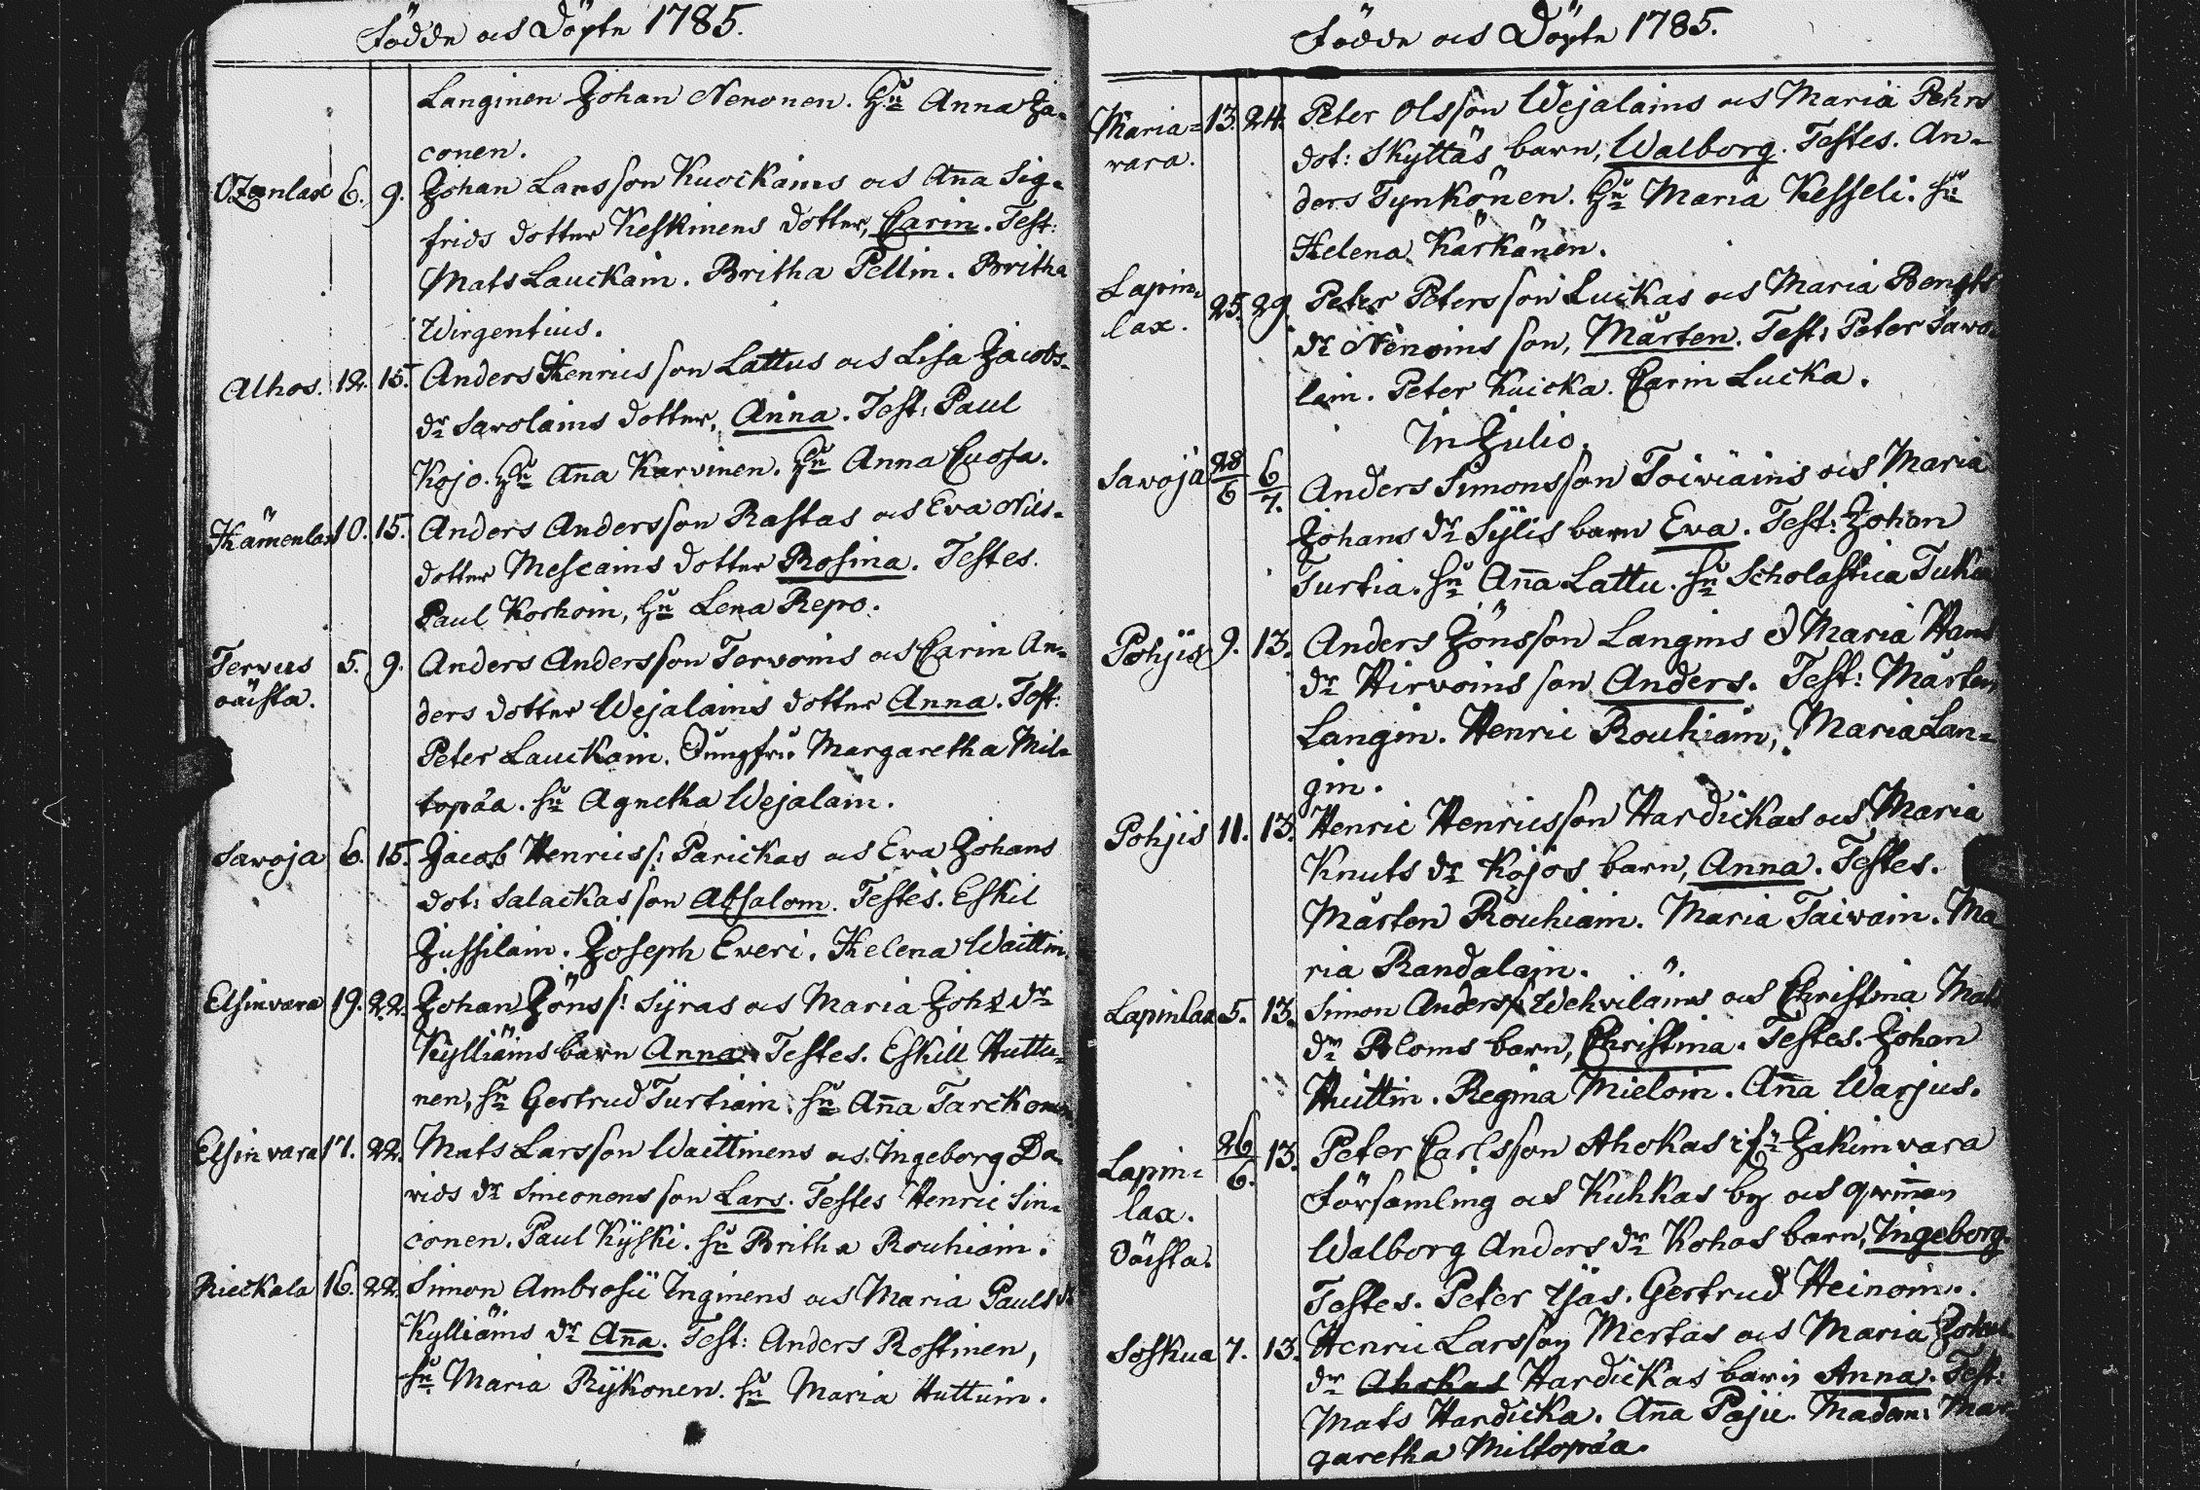 Födde och Döpte 1785.
Langinen Johan Nenonen. Hu Anna Ja-
conen.
6. 9. Johan Larsson Kuockains och Aña Sig-
frids dotter Keskinens dotter, Carin. Test:
Mats Lauckain. Britha Pellin. Britha
Wirgentius.
Alhos. 12. 15. Anders Henricsson Lattus och Lisa Jacobs-
dr Savolains dotter, Anna. Test: Paul
Kojo. Hu Aña Karvinen. Hu Anna Cuosa.
Hämenlax 10. 15. Anders Andersson Rastas och Eva Nils-
dotter Mescains dotter Rosina. Testes.
Paul Korhoin, Hu Lena Repo.
Tervus 5. 9. Anders Andersson Tervoins och Carin An-
oäista. ders dotter Wejalains dotter Anna. Test:
Peter Lauckain. Jungfru Margaretha Mil-
topäa. Hu Agnetha Wejalain.
Savoja 6. 15. Jacob Henrics: Parickas och Eva Johans
dot: Salackas son Absalom. Testes. Eskil
Jussilain. Joseph Everi. Helena Waittin
Elsinvara 19. 22. Johan Jönss: Syras och Maria Joh: dr
Kylliäins barn Anna. Testes. Eskill Huttu-
nen, Hu Gertrud Turtiain. Hu Aña Tarckonen
Elsinvara 17. 22. Mats Larsson Waittinens och Ingeborg Da-
vids dr Sinconens son Lars. Testes Henric Sin-
conen. Paul Kyski. Hu Britha Rouhiain.
Rieckala 16. 22. Simon Ambrosii Inginens och Maria Pauls dr
Kylliäins dr Aña. Test: Anders Rostinen,
Hu Maria Rykonen. Hu Maria Huttuin.
Födde och Döpte 1785.
Maria= 13. 24. Peter Olsson Wejalains och Maria Pehrs
vara. dot: Skyttäs barn, Walborg. Testes. An-
ders Tynkönen. Hu Maria Kesseli. Hu
Helena Kärkänen.
Lapin= 25. 29. Peter Petersson Luckas och Maria Bengts
lax. dr Nenoins son, Mårten. Test: Peter Savo-
lain. Peter Kuicka. Carin Lucka.
In Julio.
Savoja 28/6 6/7. Anders Simonsson Toiviäins och Maria
Johans dr Sylis barn Eva. Test: Johan
Turtia. Hu Aña Lattu. Hu Scholastica Tukia
Pohjis 9. 13. Anders Jönsson Langins & Maria Hans
dr Hirvoins son Anders. Test: Mårten
Langin. Henric Rouhiain, Maria Lan-
gin.
Pohjis 11. 13. Henric Henricsson Hardickas och Maria
Knuts dr Kojos barn, Anna. Testes.
Mårten Rouhiain. Maria Taivain. Ma
ria Randalain.
Lapinlax 5. 13. Simon Anderss: Wehviläins och Christina Mats
dr Bloms barn, Christina. Testes. Johan
Huittin. Regina Mieloin. Aña Warjus.
Lapin= 26/6. 13. Peter Carlsson Ahokas ifr Jakimvara
lax. Församling och Kuhkas by och qvinnan
oäista. Walborg Anders dr Kohos barn, Ingeborg.
Testes. Peter Ijäs. Gertrud Heinoin.
Soskua 7. 13. Henric Larsson Mertas och Maria Johans
dr Ahokas Hardickas barn Anna. Test:
Mats Hardicka. Aña Paju. Madam: Mar
garetha Miltopäa.